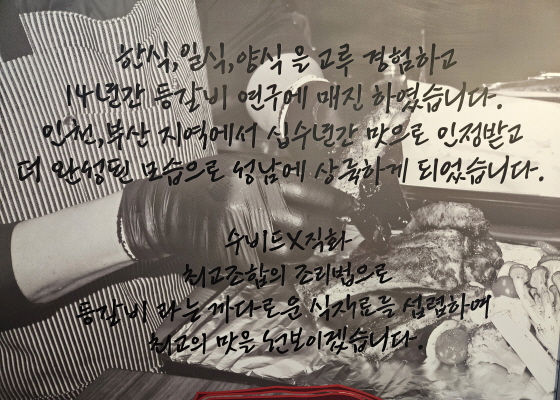 한식,일식,양식 을 고루 경험하고
14년간 등갈비 연구에 매진 하였습니다.
인천,부산 지역에서 십수년간 맛으로 인정받고
더 완성된 모습으로 성남에 상륙하게 되었습니다.
수비드X직화
최고조합의 조리법으로
등갈비 라는 까다로운 식자료를 섭렵하며
최고의 맛을 선보이겠습니다.